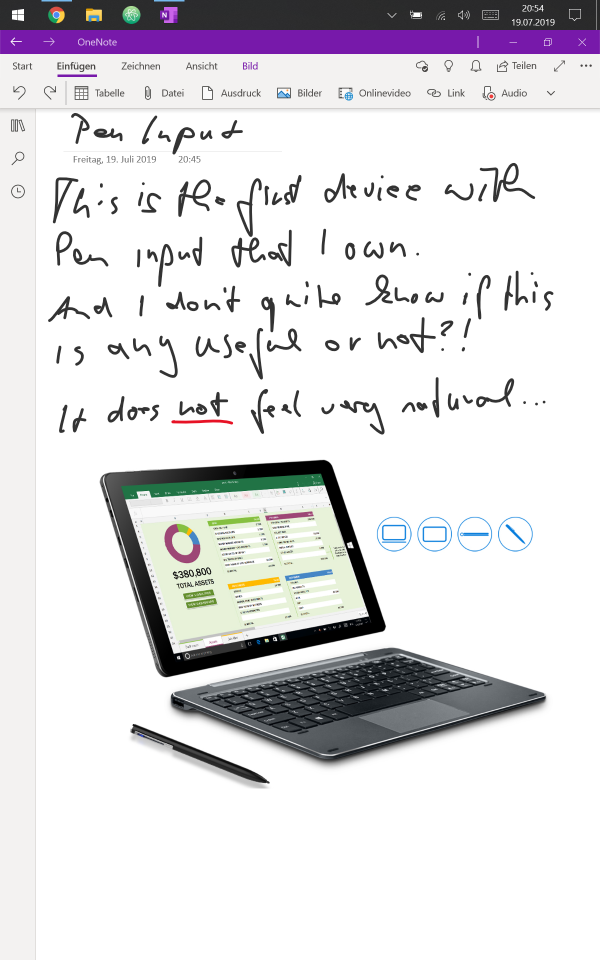 20:54
19.07.2019
OneNote
Start Einfügen Zeichnen Ansicht Bild Teilen
Tabelle Datei Ausdruck Bilder Onlinevideo Link Audio
Pen Input
Freitag, 19. Juli 2019 20:45
This is the first device with
Pen input that I own.
And I don't quite know if this
is any useful or not?!
It does not feel very natural...
$380,800
TOTAL ASSETS